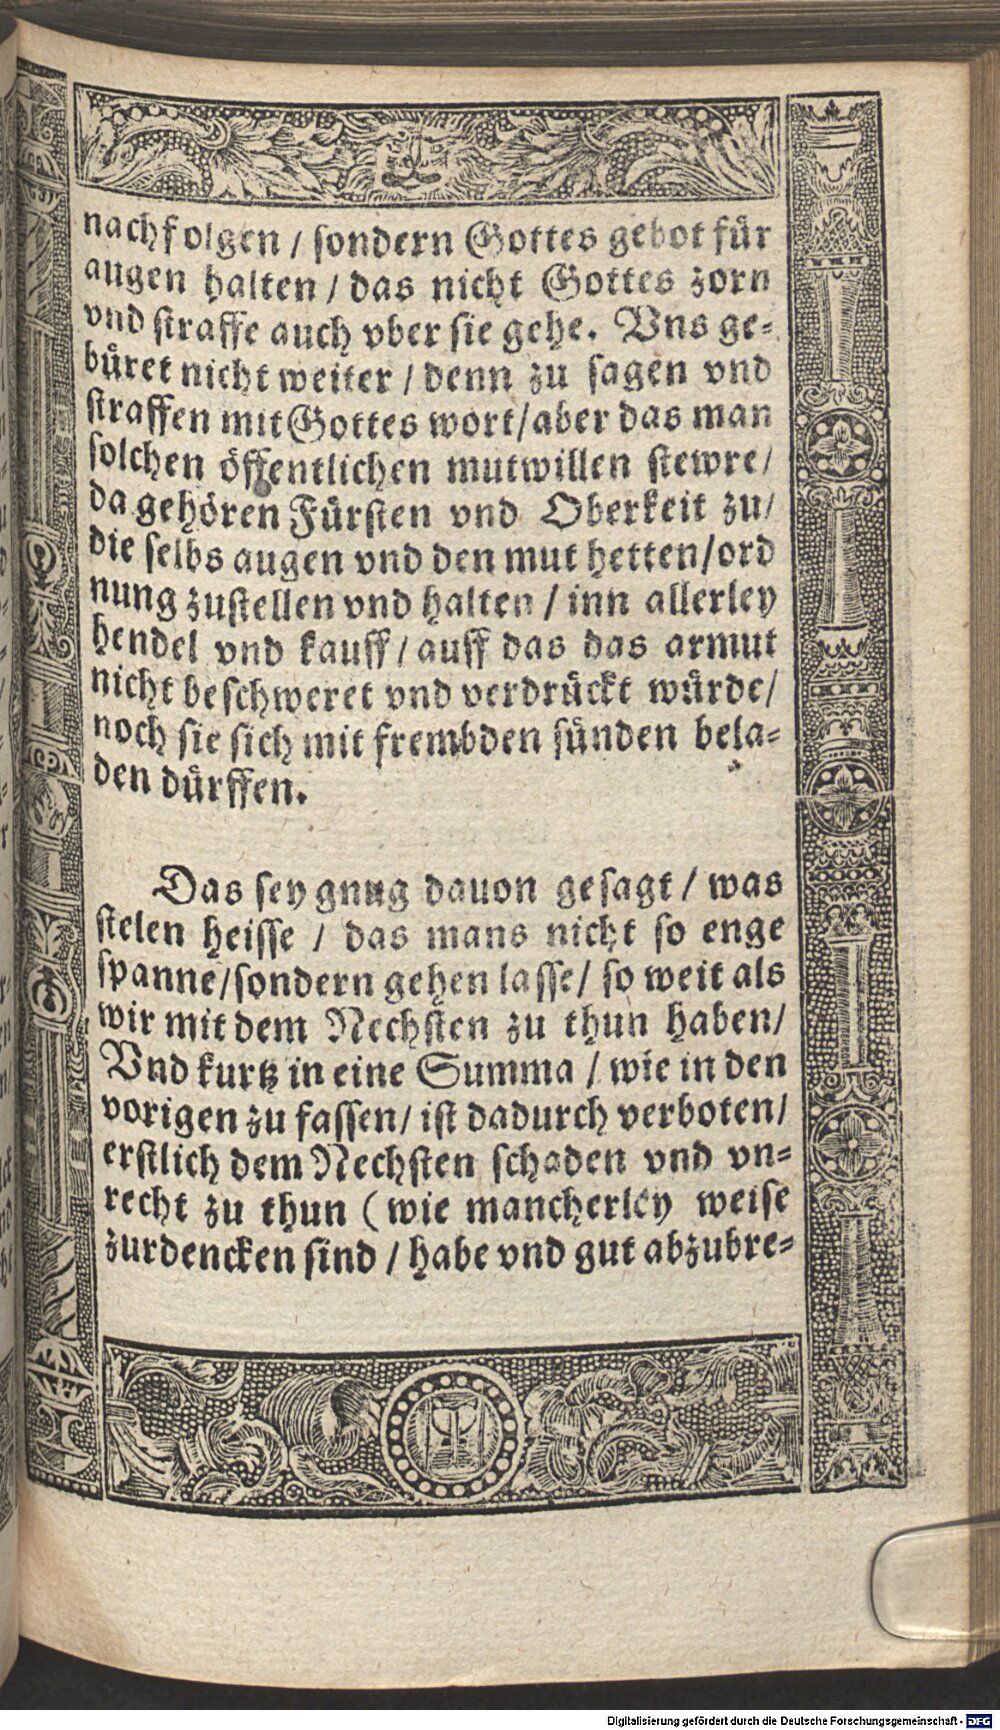 nachfolgen / sondern Gottes gebot für
augen halten / das nicht Gottes zorn
vnd straffe auch vber sie gehe. Vns ge-
büret nicht weiter / denn zu sagen vnd
straffen mit Gottes wort / aber das man
solchen öffentlichen mutwillen stewre /
da gehören Fürsten vnd Oberkeit zu /
die selbs augen vnd den mut hetten / ord
nung zustellen vnd halten / inn allerley
hendel vnd kauff / auff das das armut
nicht beschweret vnd verdrückt würde /
noch sie sich mit frembden sünden bela-
den dürffen.
Das sey gnug dauon gesagt / was
stelen heisse / das mans nicht so enge
spanne / sondern gehen lasse / so weit als
wir mit dem Nechsten zu thun haben /
Vnd kurtz in eine Summa / wie in den
vorigen zu fassen / ist dadurch verboten /
erstlich dem Nechsten schaden vnd vn-
recht zu thun ( wie mancherley weise
zurdencken sind / habe vnd gut abzubre-
Digitalisierung gefördert durch die Deutsche Forschungsgemeinschaft - DFG